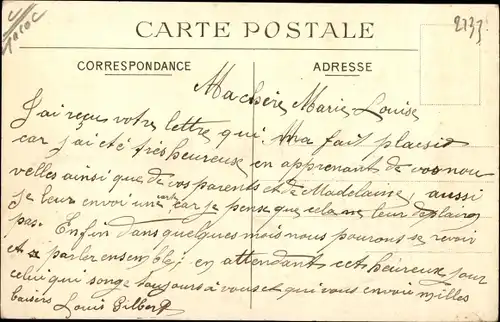 Maroc
2737
CARTE POSTALE
CORRESPONDANCE
ADRESSE
Ma chère Marie Louise
J'ai reçus votre lettre qui m'a fait plaisir
car j'ai été très heureuse en apprenant de vos nou
velles ainsi que de vos parents et de Madelaine, aussi
je leur envoi une carte car je pense que cela ne leur deplaira
pas. Enfin dans quelques mois nous pourons se revoir
et parler ensemble; en attendant cet heureux jour
celui qui songe toujours à vous et qui vous envoi milles
baisers Louis Gilbert